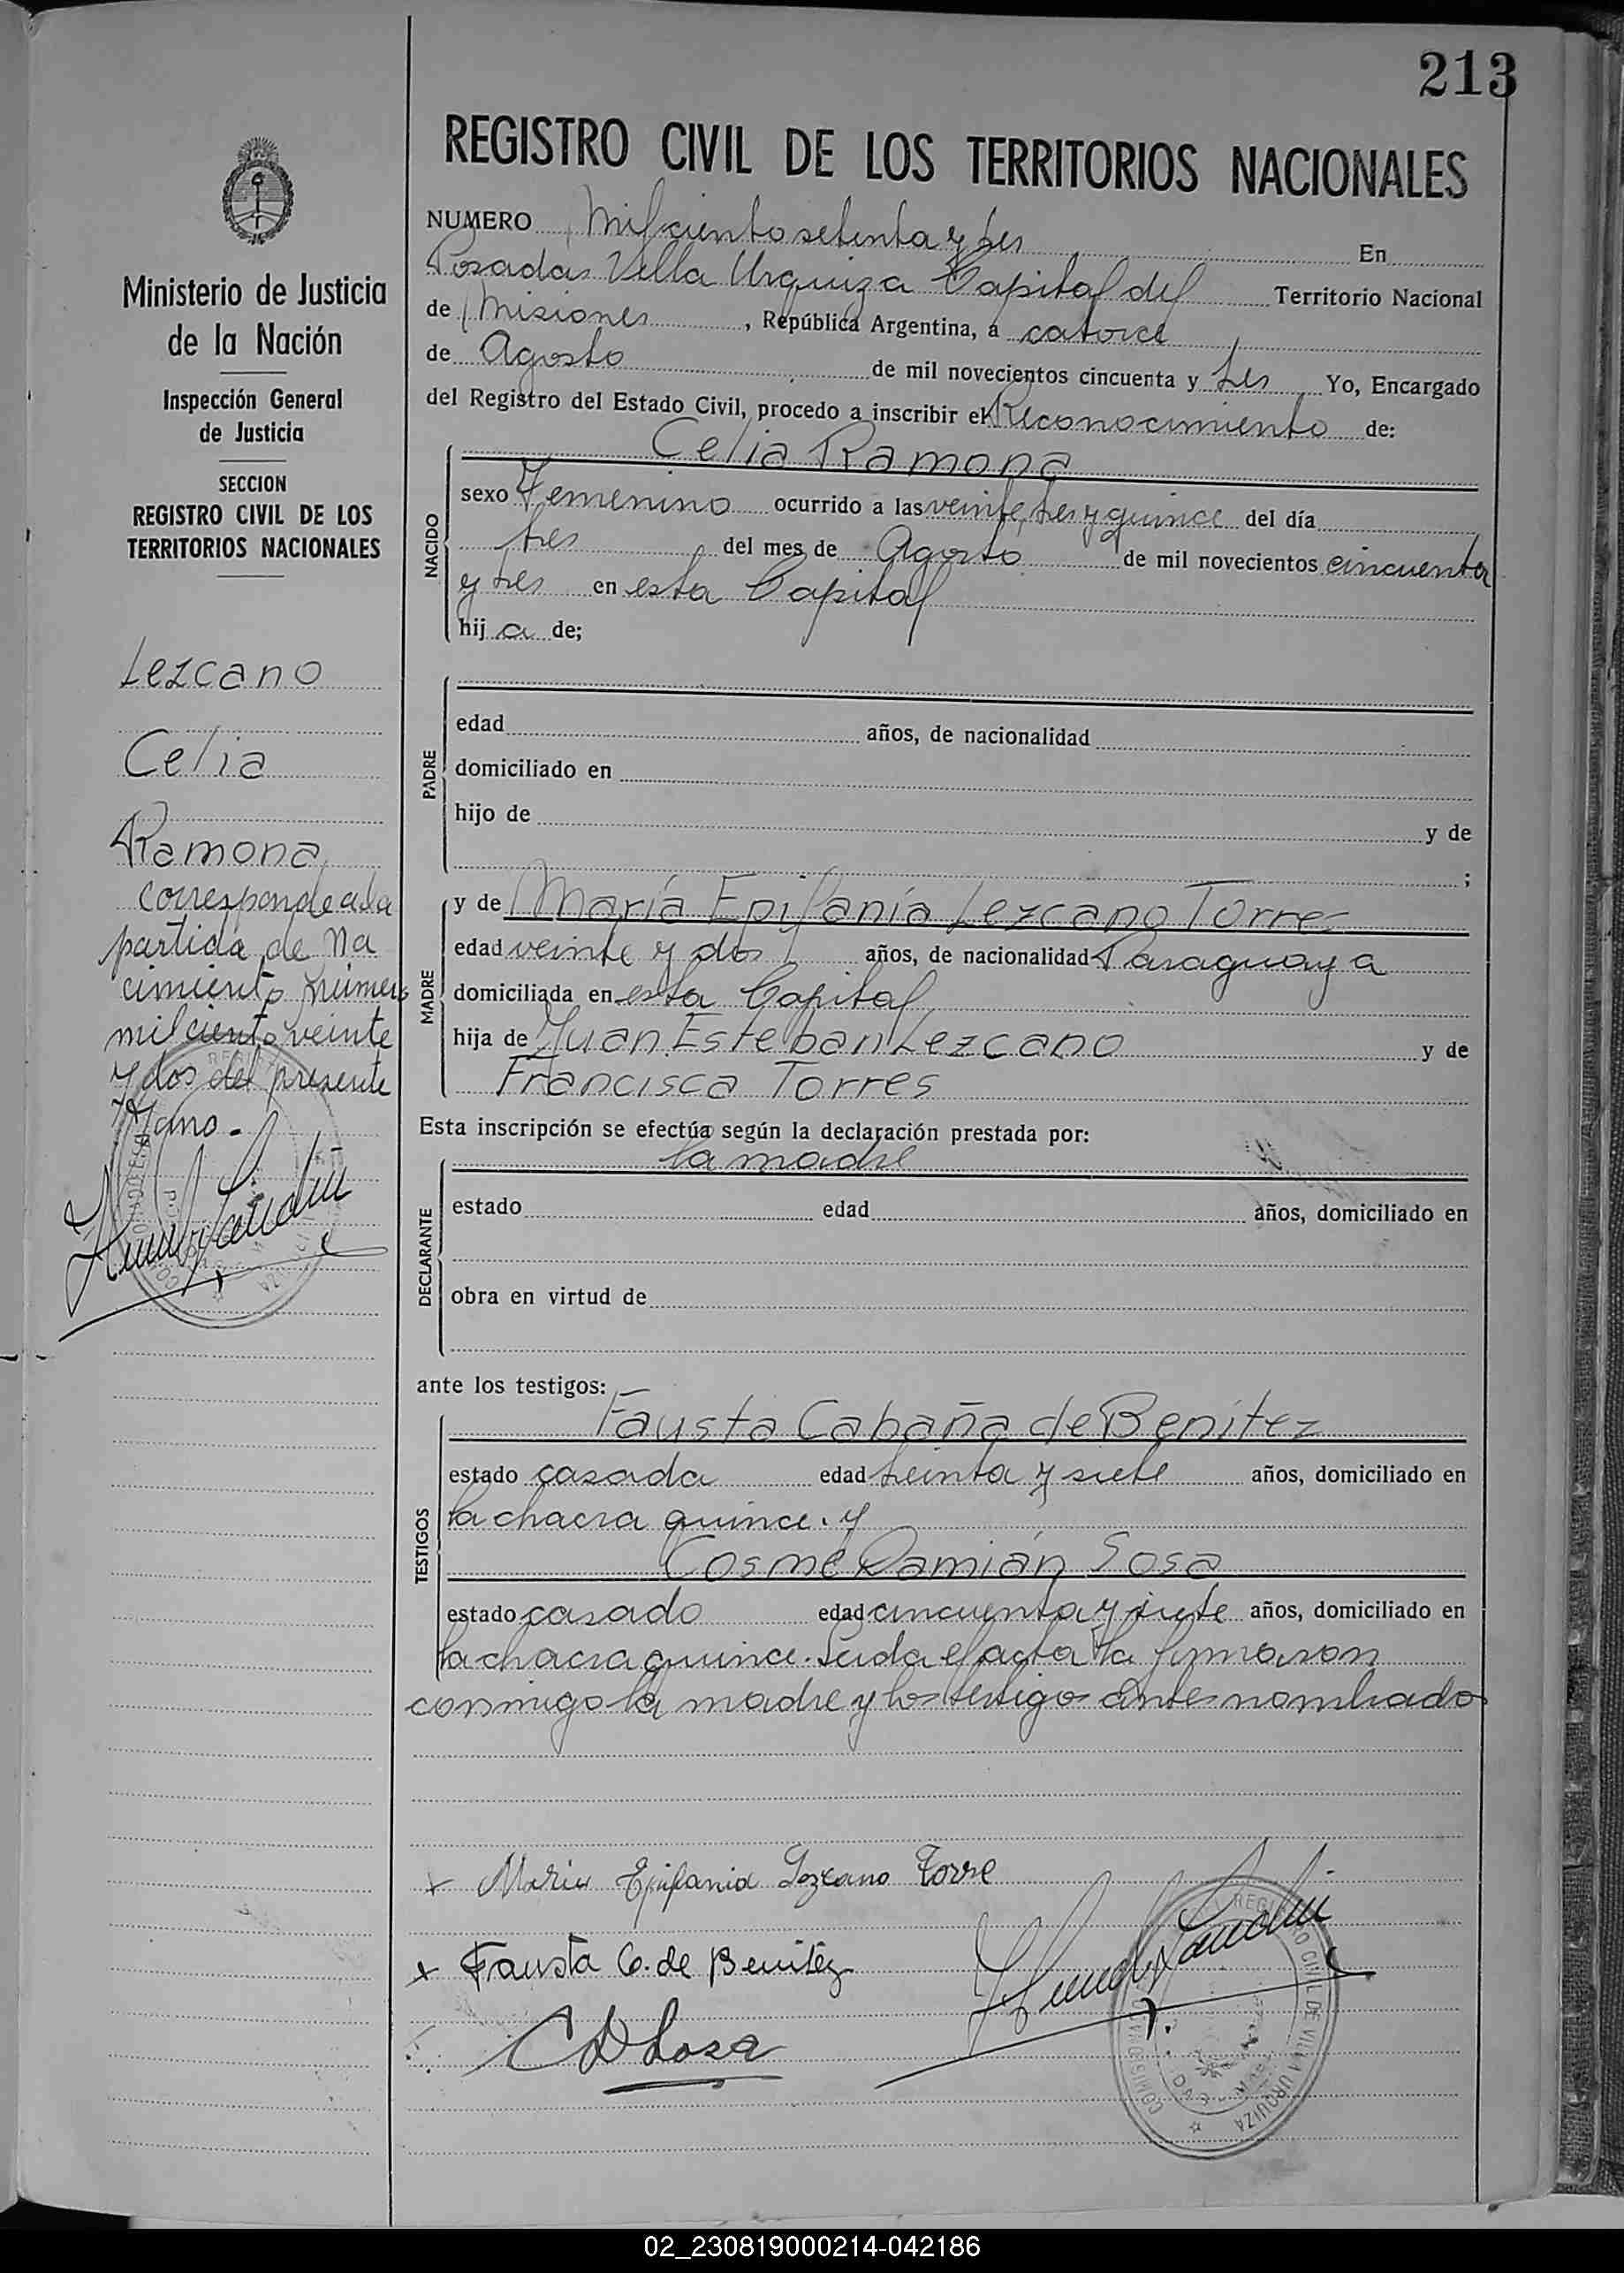 213
REGISTRO CIVIL DE LOS TERRITORIOS NACIONALES
Ministerio de Justicia
de la Nación
Inspección General
de Justicia
SECCION
REGISTRO CIVIL DE LOS
TERRITORIOS NACIONALES
Lezcano
Celia
Ramona
corresponde a la
partida de Na
cimiento número
mil ciento veinte
y dos del presente
año.
NUMERO Mil ciento setenta y tres En
Posadas Villa Urquiza Capital del Territorio Nacional
de Misiones, República Argentina, a catorce
de Agosto de mil novecientos cincuenta y tres Yo, Encargado
del Registro del Estado Civil, procedo a inscribir el Reconocimiento de:
NACIDO
Celia Ramona
sexo Femenino ocurrido a las veinte, tres y quince del día
tres del mes de Agosto de mil novecientos cincuenta
y tres en esta Capital
hij a de;
PADRE
edad años, de nacionalidad
domiciliado en
hijo de y de
;
MADRE
y de María Epifanía Lezcano Torres
edad veinte y dos años, de nacionalidad Paraguaya
domiciliada en esta Capital
hija de Juan Esteban Lezcano y de
Francisca Torres
Esta inscripción se efectúa según la declaración prestada por:
DECLARANTE
la madre
estado edad años, domiciliado en
obra en virtud de
ante los testigos:
TESTIGOS
Fausta Cabaña de Benítez
estado casada edad treinta y siete años, domiciliado en
la chacra quince. y
Cosme Damián Sosa
estado casado edad cincuenta y siete años, domiciliado en
la chacra quince. Leida el acta la firmaron
conmigo la madre y los testigos antes nombrados
x Maria Epifania Lezcano Torre
x Fausta C. de Benitéz
C D Sosa
REGISTRO CIVIL DE VILLA URQUIZA
02_230819000214-042186